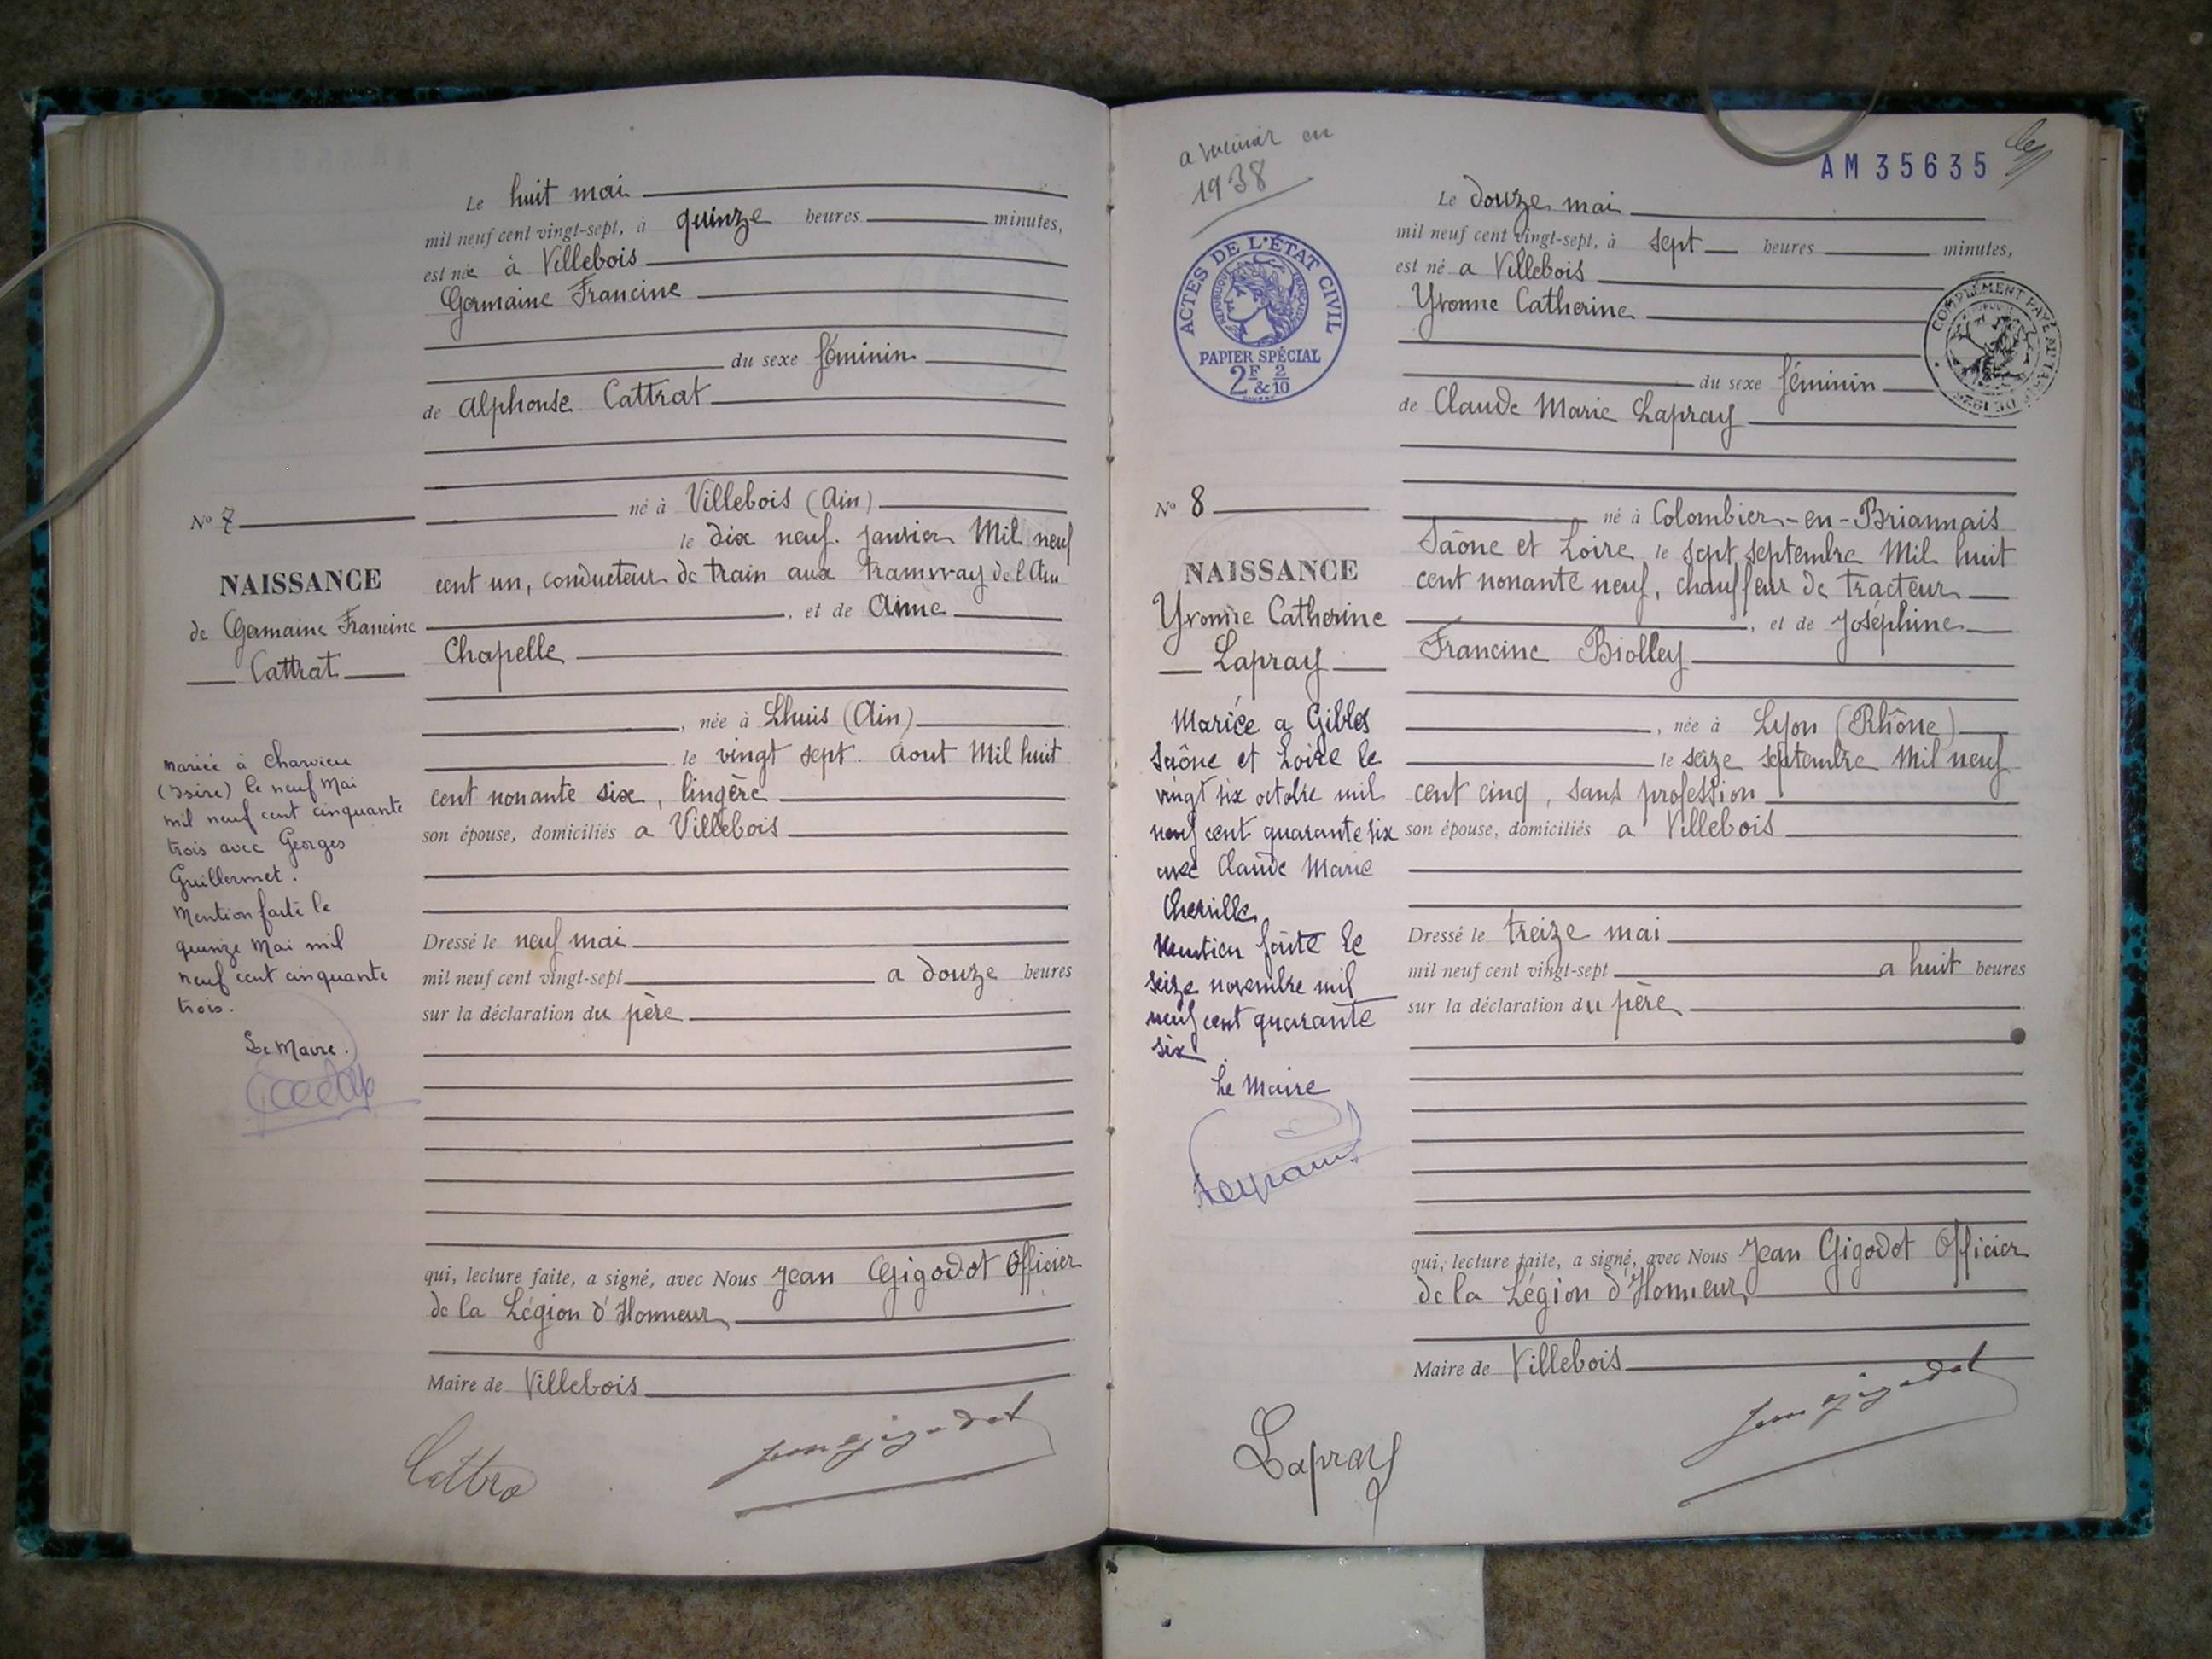 Le huit mai
mil neuf cent vingt-sept, à quinze heures minutes,
est née à Villebois
Germaine Francine
du sexe féminin
de Alphonse Cattrat
né à Villebois (Ain)
le dix neuf. janvier Mil neuf
cent un, conducteur de train aux tramway de l'Ain
, et de Aimé
Chapelle
, née à Lhuis (Ain)
le vingt sept. Aout Mil huit
cent nonante six, lingère
son épouse, domiciliés a Villebois
Dressé le neuf mai
mil neuf cent vingt-sept a douze heures
sur la déclaration du père
qui, lecture faite, a signé, avec Nous Jean Gigodot Officier
de la Légion d'Honneur,
Maire de Villebois
Cattra
Jean Gigodot
No 7
NAISSANCE
de Germaine Francine
Cattrat
Mariée à Charvieu
(Isère) le neuf Mai
mil neuf cent cinquante
trois avec Georges
Guillermet.
Mention faite le
quinze Mai mil
neuf cent cinquante
trois.
Le Maire.
a en
1938
AM 35635
ACTES DE L'ÉTAT CIVIL
RÉPUBLIQUE FRANÇAISE
PAPIER SPÉCIAL
2F & 2/10
Le douze mai
mil neuf cent vingt-sept, à sept heures minutes,
est né a Villebois
Yvonne Catherine
COMPLÉMENT PAYÉ AU TARIF DE 1926
du sexe féminin
de Claude Marie Lapray
né à Colombier-en-Briannais
Saône et Loire le sept septembre Mil huit
cent nonante neuf, chauffeur de tracteur
, et de Joséphine
Francine Biolley
, née à Lyon (Rhône)
le seize septembre Mil neuf
cent cinq, sans profession
son épouse, domiciliés a Villebois
Dressé le treize mai
mil neuf cent vingt-sept a huit heures
sur la déclaration du père
qui, lecture faite, a signé, avec Nous Jean Gigodot Officier
de la Légion d'Honneur,
Maire de Villebois
Lapray
Jean Gigodot
No 8
NAISSANCE
Yvonne Catherine
Lapray
Mariée a Gibles
Saône et Loire le
vingt six octobre mil
neuf cent quarante six
avec Claude Marie
Mention faite le
seize novembre mil
neuf cent quarante
six
Le Maire